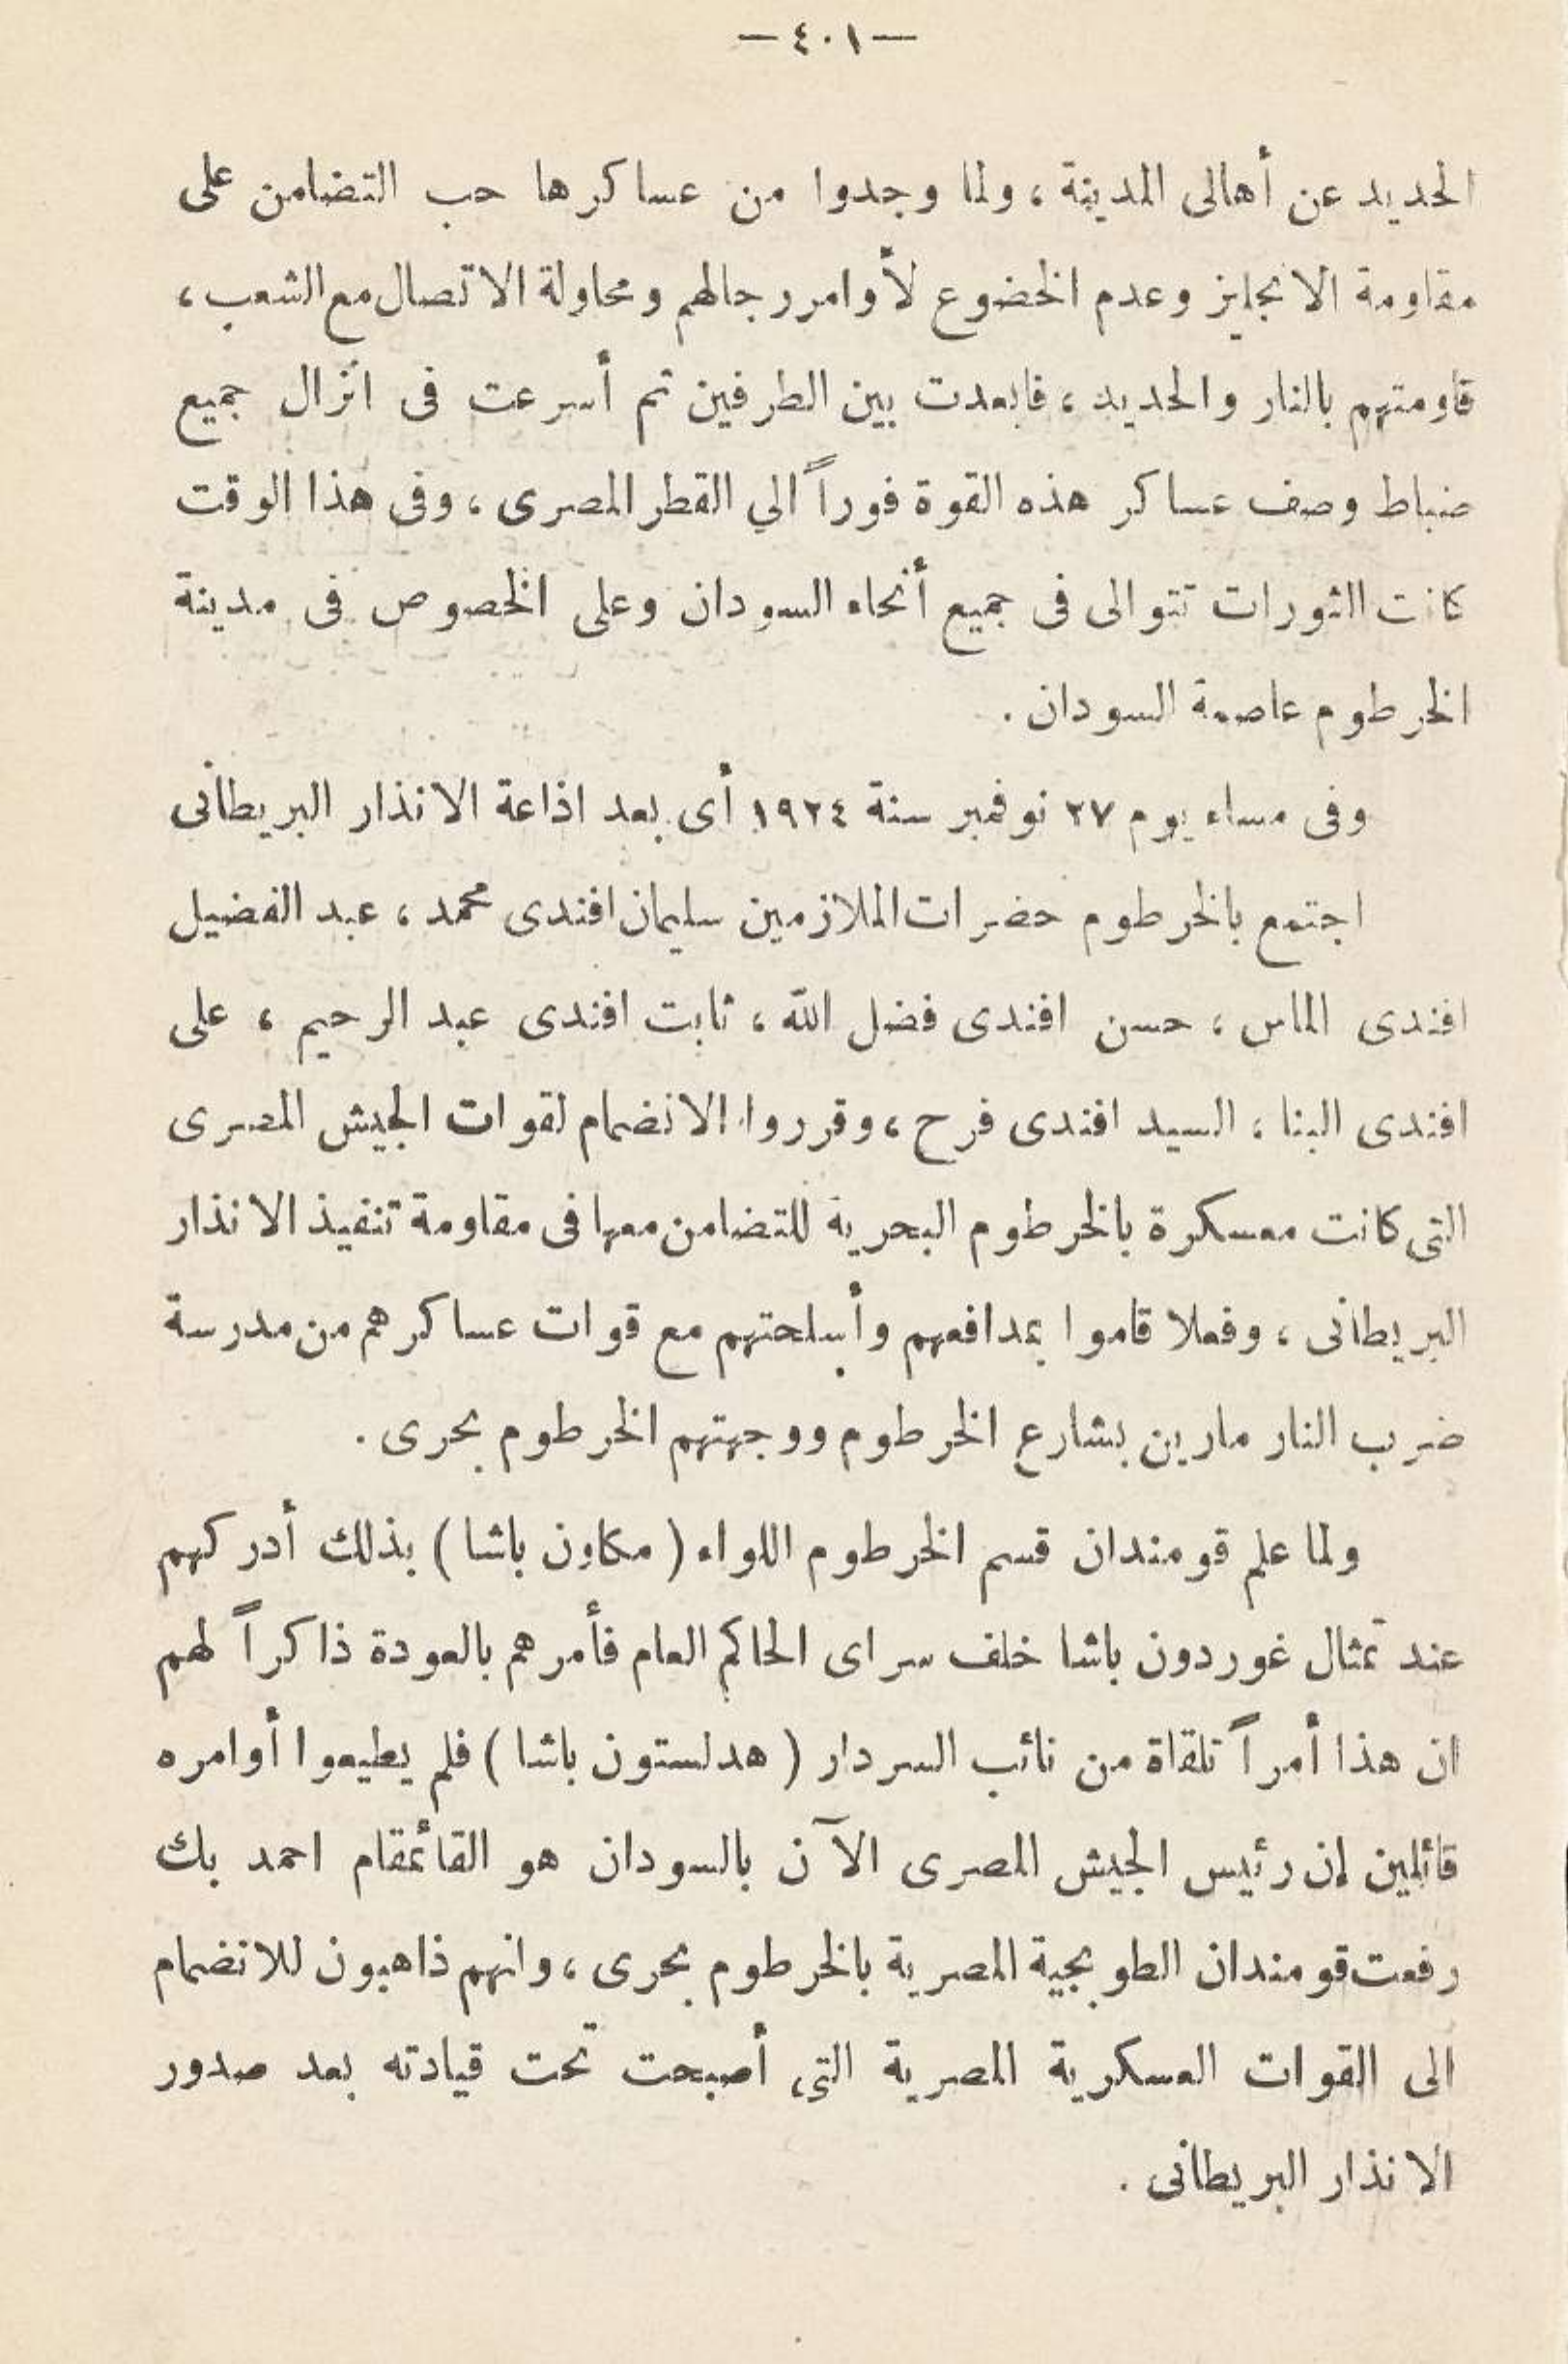 — ٤٠١ —
الحديد عن أهالى المدينة ، ولما وجدوا من عساكرها حب التضامن على
مقاومة الانجليز وعدم الخضوع لأوامر رجالهم ومحاولة الاتصال مع الشعب ،
قاومتهم بالنار والحديد ، فابعدت بين الطرفين ثم أسرعت فى انزال جميع
ضباط وصف عساكر هذه القوة فوراً الي القطر المصرى ، وفى هذا الوقت
كانت الثورات تتوالى فى جميع أنحاء السودان وعلى الخصوص فى مدينة
الخرطوم عاصمة السودان .
وفى مساء يوم ٢٧ نوفمبر سنة ١٩٢٤ أى بعد اذاعة الانذار البريطانى
اجتمع بالخرطوم حضرات الملازمين سليمان افندى محمد ، عبد الفضيل
افندى الماس ، حسن افندى فضل الله ، ثابت افندى عبد الرحيم ، على
افندى البنا ، السيد افندى فرح ، وقرروا الانضمام لقوات الجيش المصرى
التى كانت معسكرة بالخرطوم البحرية للتضامن معها فى مقاومة تنفيذ الانذار
البريطانى ، وفعلا قاموا بمدافعهم وأسلحتهم مع قوات عساكرهم من مدرسة
ضرب النار مارين بشارع الخرطوم ووجهتهم الخرطوم بحرى .
ولما علم قومندان قسم الخرطوم اللواء ( مكاون باشا ) بذلك أدركهم
عند تمثال غوردون باشا خلف سراى الحاكم العام فأمرهم بالعودة ذاكراً لهم
ان هذا أمراً تلقاة من نائب السردار ( هدلستون باشا ) فلم يطيعوا أوامره
قائلين إن رئيس الجيش المصرى الآن بالسودان هو القائمقام احمد بك
رفعت قومندان الطوبجية المصرية بالخرطوم بحرى ، وانهم ذاهبون للانضمام
الى القوات العسكرية المصرية التى أصبحت تحت قيادته بعد صدور
الانذار البريطانى .